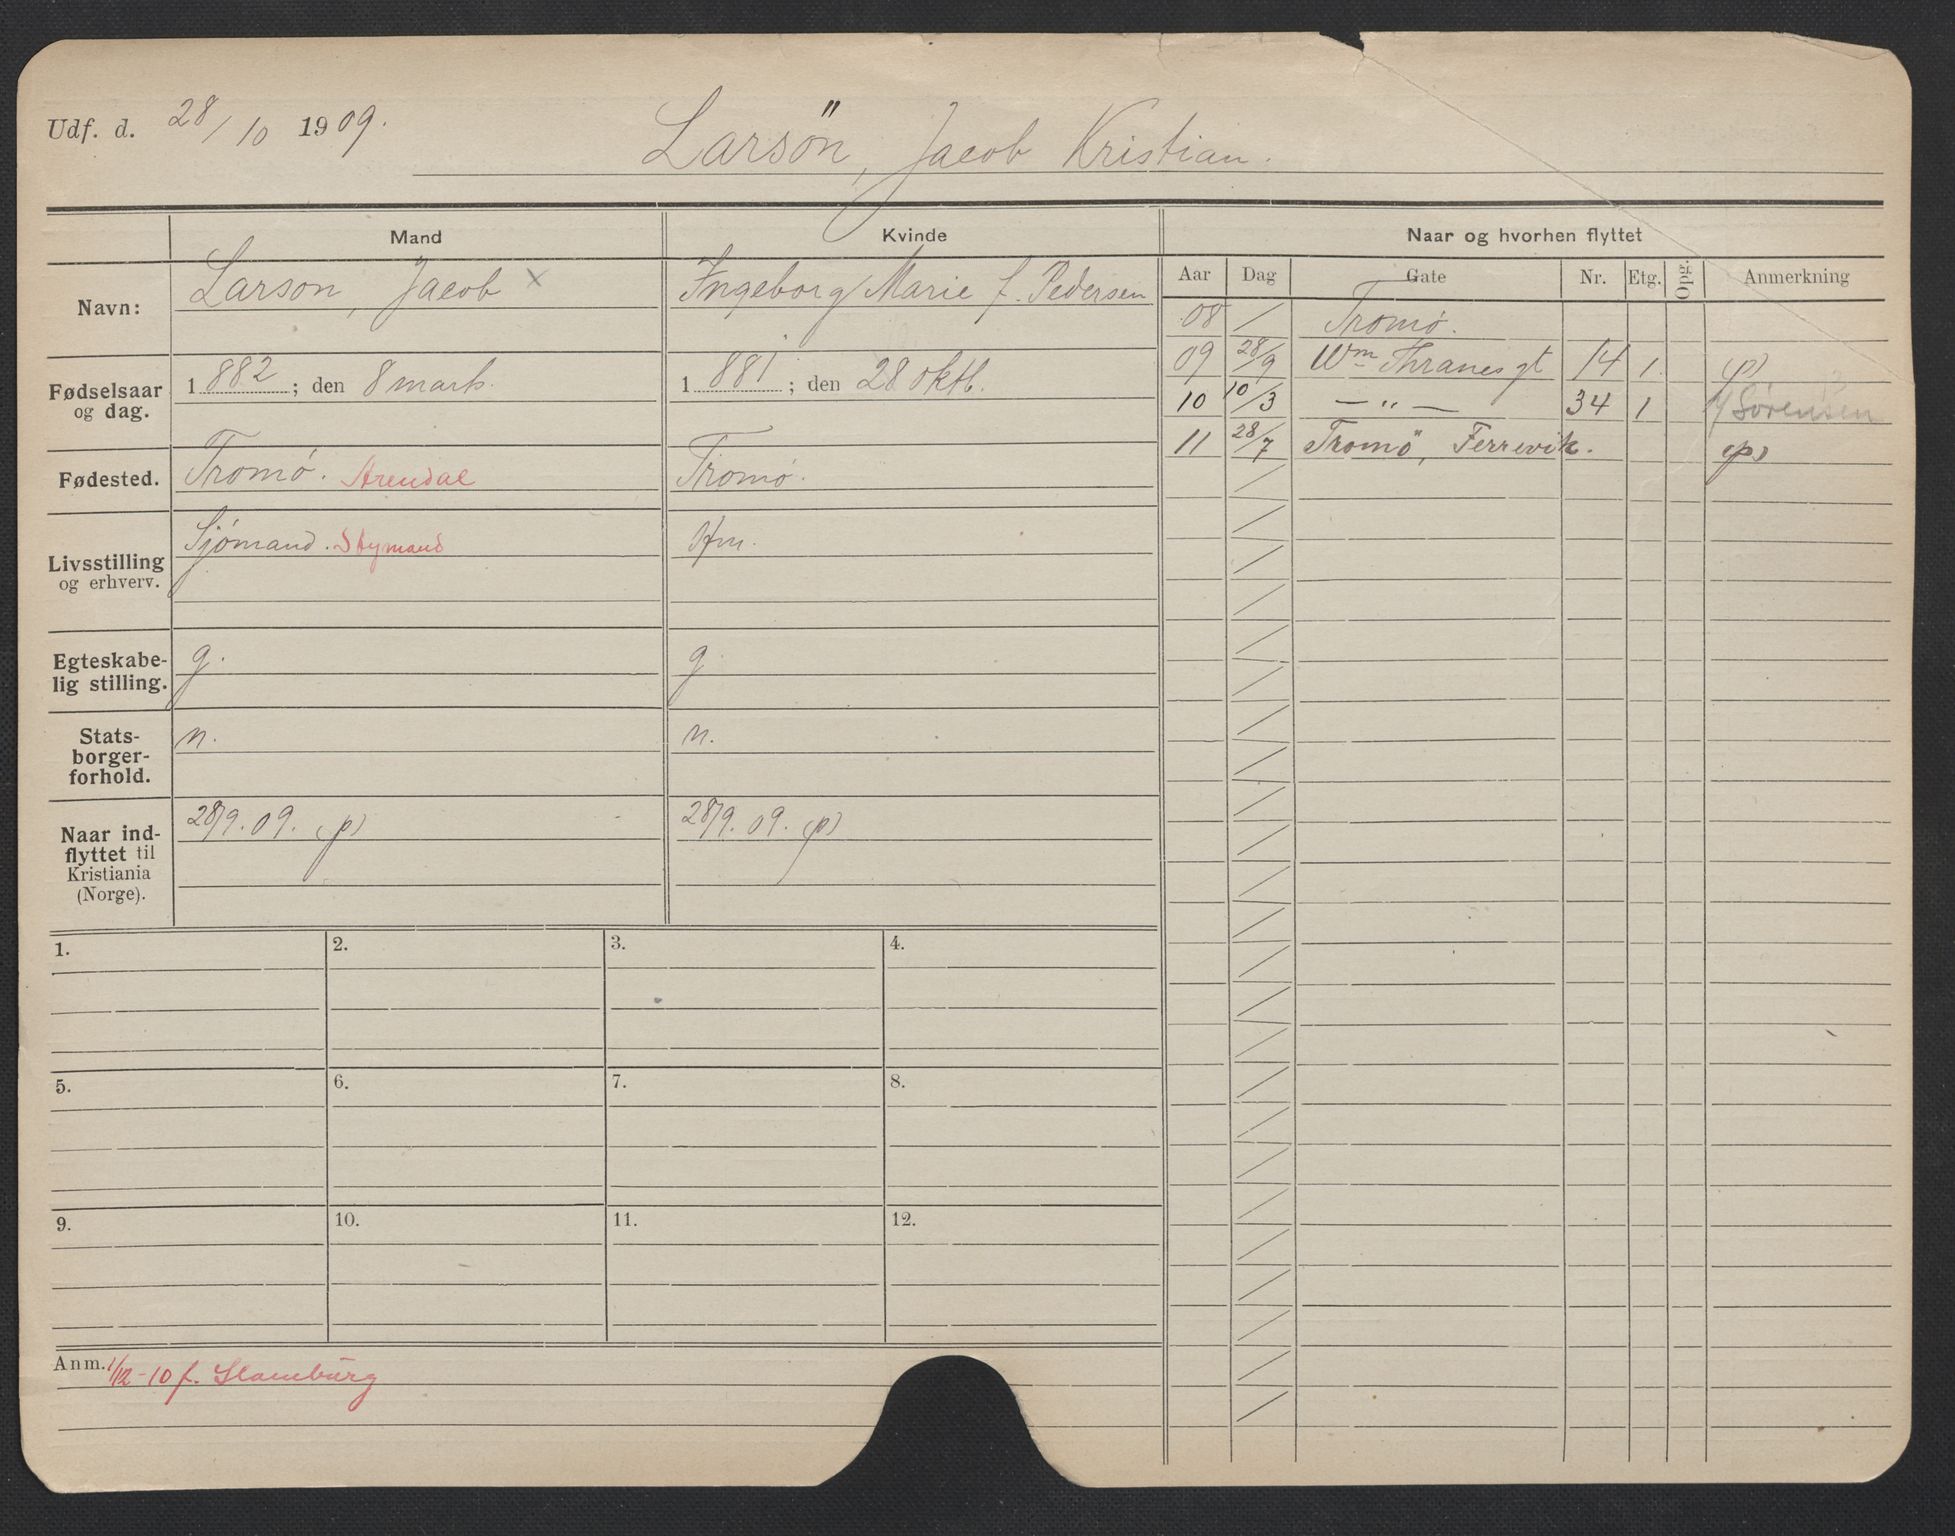 Udf. d. 28/10 1909.
Larsön, Jacob Kristian.
Mand
Kvinde
Naar og hvorhen flyttet
Navn:
Larson, Jacob x
Ingeborg Marie f. Pedersen
Aar Dag Gate Nr. Etg. Opg. Anmerkning
08 / Tromø.
09 28/9 Wm Thranes gt 14 1 (p)
10 10/3 — " — 34 1 Sørensen
11 28/7 Tromö, Ferrevik. (p)
Fødselsaar og dag.
1882; den 8 marts.
1881; den 28 oktb.
Fødested.
Tromø. Arendal
Tromø.
Livsstilling og erhverv.
Sjømand. Stymand
Hm.
Egteskabe-
lig stilling.
g.
g.
Stats-
borger-
forhold.
n.
n.
Naar ind-
flyttet til
Kristiania
(Norge).
28/9.09. (p)
28/9.09. (p)
1. 2. 3. 4.
5. 6. 7. 8.
9. 10. 11. 12.
Anm. 1/12-10 f.